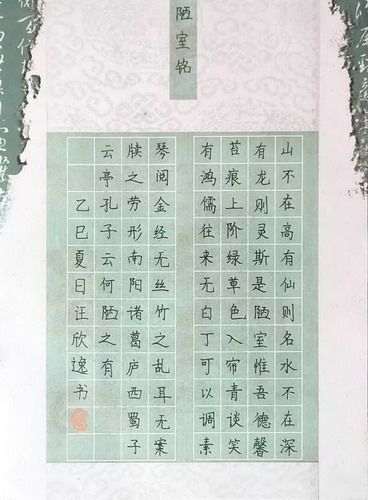 陋室铭
山不在高有仙则名水不在深
有龙则灵斯是陋室惟吾德馨
苔痕上阶绿草色入帘青谈笑
有鸿儒往来无白丁可以调素
琴阅金经无丝竹之乱耳无案
牍之劳形南阳诸葛庐西蜀子
云亭孔子云何陋之有
乙巳夏日汪欣逸书